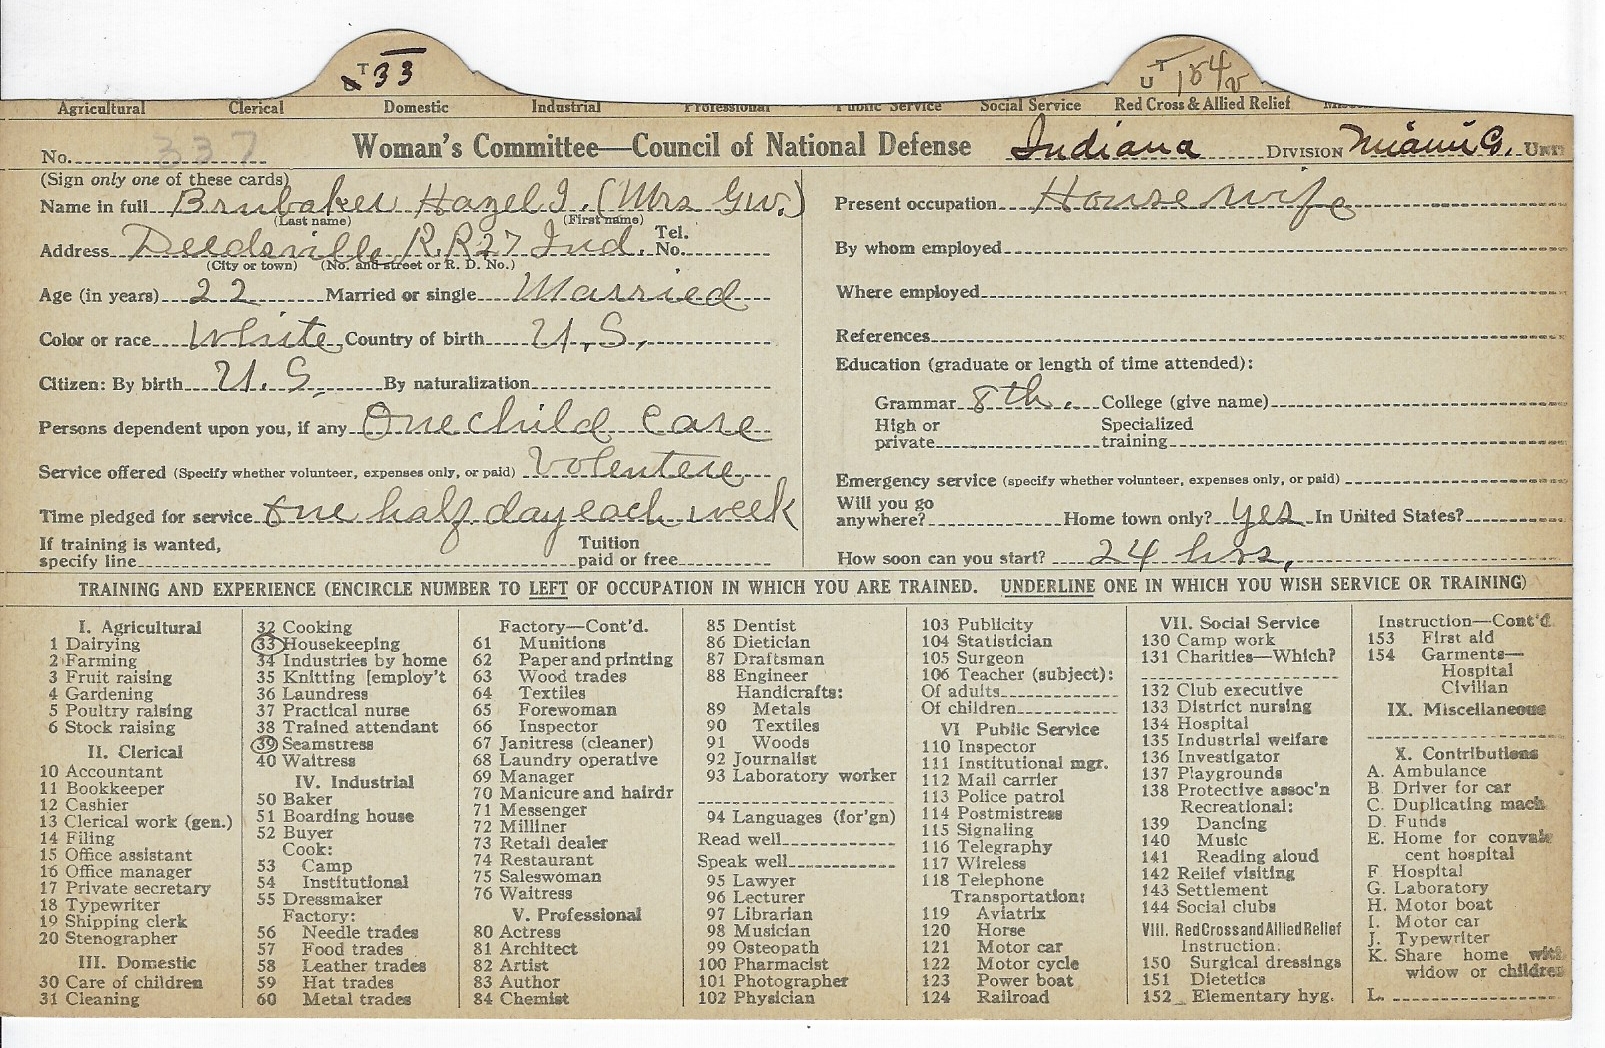 T 33
U T 154
Agricultural Clerical Domestic Industrial Professional Public Service Social Service Red Cross & Allied Relief
No. 337 Woman's Committee—Council of National Defense Indiana DIVISION Miami Co. UNIT
(Sign only one of these cards)
Name in full Brubaker Hazel I. (Mrs Gw.)
(Last name) (First name)
Address Deedsville R.R 27 Ind. Tel. No.
(City or town) (No. and street or R. D. No.)
Age (in years) 22 Married or single Married
Color or race White Country of birth U.S.
Citizen: By birth U.S. By naturalization
Persons dependent upon you, if any One child care
Service offered (Specify whether volunteer, expenses only, or paid) Volentere
Time pledged for service one half day each week
If training is wanted, specify line Tuition paid or free
Present occupation House wife
By whom employed
Where employed
References
Education (graduate or length of time attended):
Grammar 8th. College (give name)
High or private Specialized training
Emergency service (specify whether volunteer, expenses only, or paid)
Will you go anywhere? Home town only? yes In United States?
How soon can you start? 24 hrs.
TRAINING AND EXPERIENCE (ENCIRCLE NUMBER TO LEFT OF OCCUPATION IN WHICH YOU ARE TRAINED. UNDERLINE ONE IN WHICH YOU WISH SERVICE OR TRAINING)
I. Agricultural
1 Dairying
2 Farming
3 Fruit raising
4 Gardening
5 Poultry raising
6 Stock raising
II. Clerical
10 Accountant
11 Bookkeeper
12 Cashier
13 Clerical work (gen.)
14 Filing
15 Office assistant
16 Office manager
17 Private secretary
18 Typewriter
19 Shipping clerk
20 Stenographer
III. Domestic
30 Care of children
31 Cleaning
32 Cooking
33 Housekeeping
34 Industries by home
35 Knitting [employ't
36 Laundress
37 Practical nurse
38 Trained attendant
39 Seamstress
40 Waitress
IV. Industrial
50 Baker
51 Boarding house
52 Buyer
Cook:
53 Camp
54 Institutional
55 Dressmaker
Factory:
56 Needle trades
57 Food trades
58 Leather trades
59 Hat trades
60 Metal trades
Factory—Cont'd.
61 Munitions
62 Paper and printing
63 Wood trades
64 Textiles
65 Forewoman
66 Inspector
67 Janitress (cleaner)
68 Laundry operative
69 Manager
70 Manicure and hairdr
71 Messenger
72 Milliner
73 Retail dealer
74 Restaurant
75 Saleswoman
76 Waitress
V. Professional
80 Actress
81 Architect
82 Artist
83 Author
84 Chemist
85 Dentist
86 Dietician
87 Draftsman
88 Engineer
Handicrafts:
89 Metals
90 Textiles
91 Woods
92 Journalist
93 Laboratory worker
94 Languages (for'gn)
Read well
Speak well
95 Lawyer
96 Lecturer
97 Librarian
98 Musician
99 Osteopath
100 Pharmacist
101 Photographer
102 Physician
103 Publicity
104 Statistician
105 Surgeon
106 Teacher (subject):
Of adults
Of children
VI Public Service
110 Inspector
111 Institutional mgr.
112 Mail carrier
113 Police patrol
114 Postmistress
115 Signaling
116 Telegraphy
117 Wireless
118 Telephone
Transportation:
119 Aviatrix
120 Horse
121 Motor car
122 Motor cycle
123 Power boat
124 Railroad
VII. Social Service
130 Camp work
131 Charities—Which?
132 Club executive
133 District nursing
134 Hospital
135 Industrial welfare
136 Investigator
137 Playgrounds
138 Protective assoc'n
Recreational:
139 Dancing
140 Music
141 Reading aloud
142 Relief visiting
143 Settlement
144 Social clubs
VIII. Red Cross and Allied Relief
Instruction:
150 Surgical dressings
151 Dietetics
152 Elementary hyg.
Instruction—Cont'd.
153 First aid
154 Garments—
Hospital
Civilian
IX. Miscellaneous
X. Contributions
A. Ambulance
B. Driver for car
C. Duplicating mach
D. Funds
E. Home for convales
cent hospital
F Hospital
G. Laboratory
H. Motor boat
I. Motor car
J. Typewriter
K. Share home with
widow or children
L.